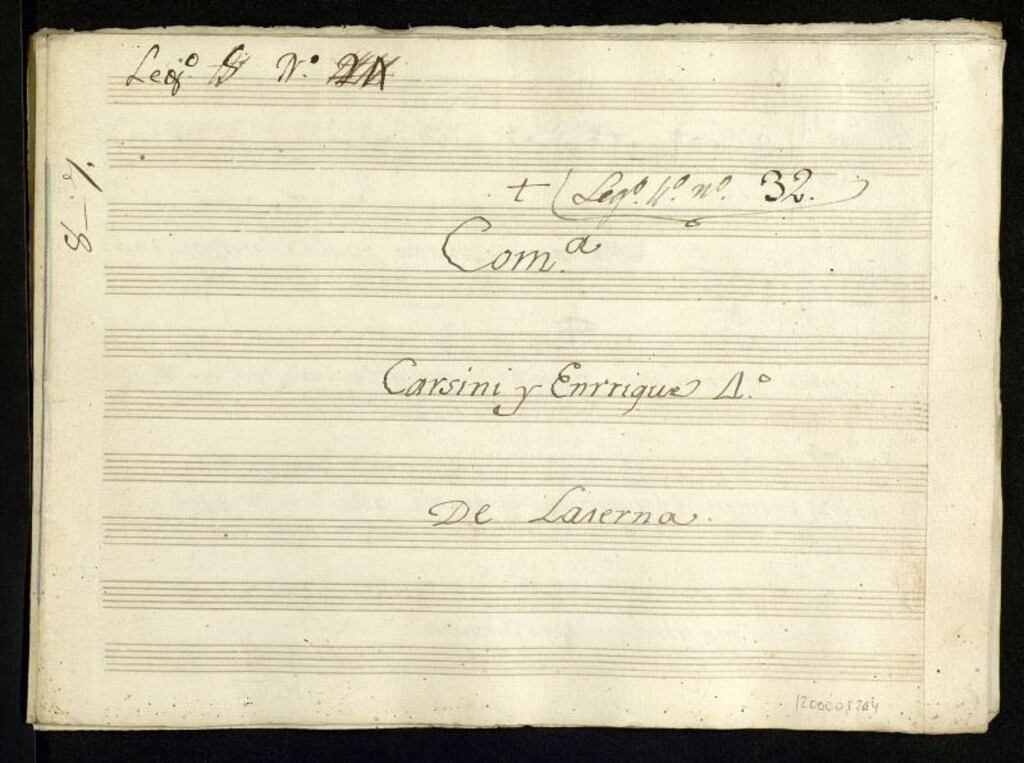 Legº 8 Nº
8-7.
+ (Legº. 4º. nº. 32.
Com.ª
Carsini y Enrrique 4.º
De Laserna.
1200005264